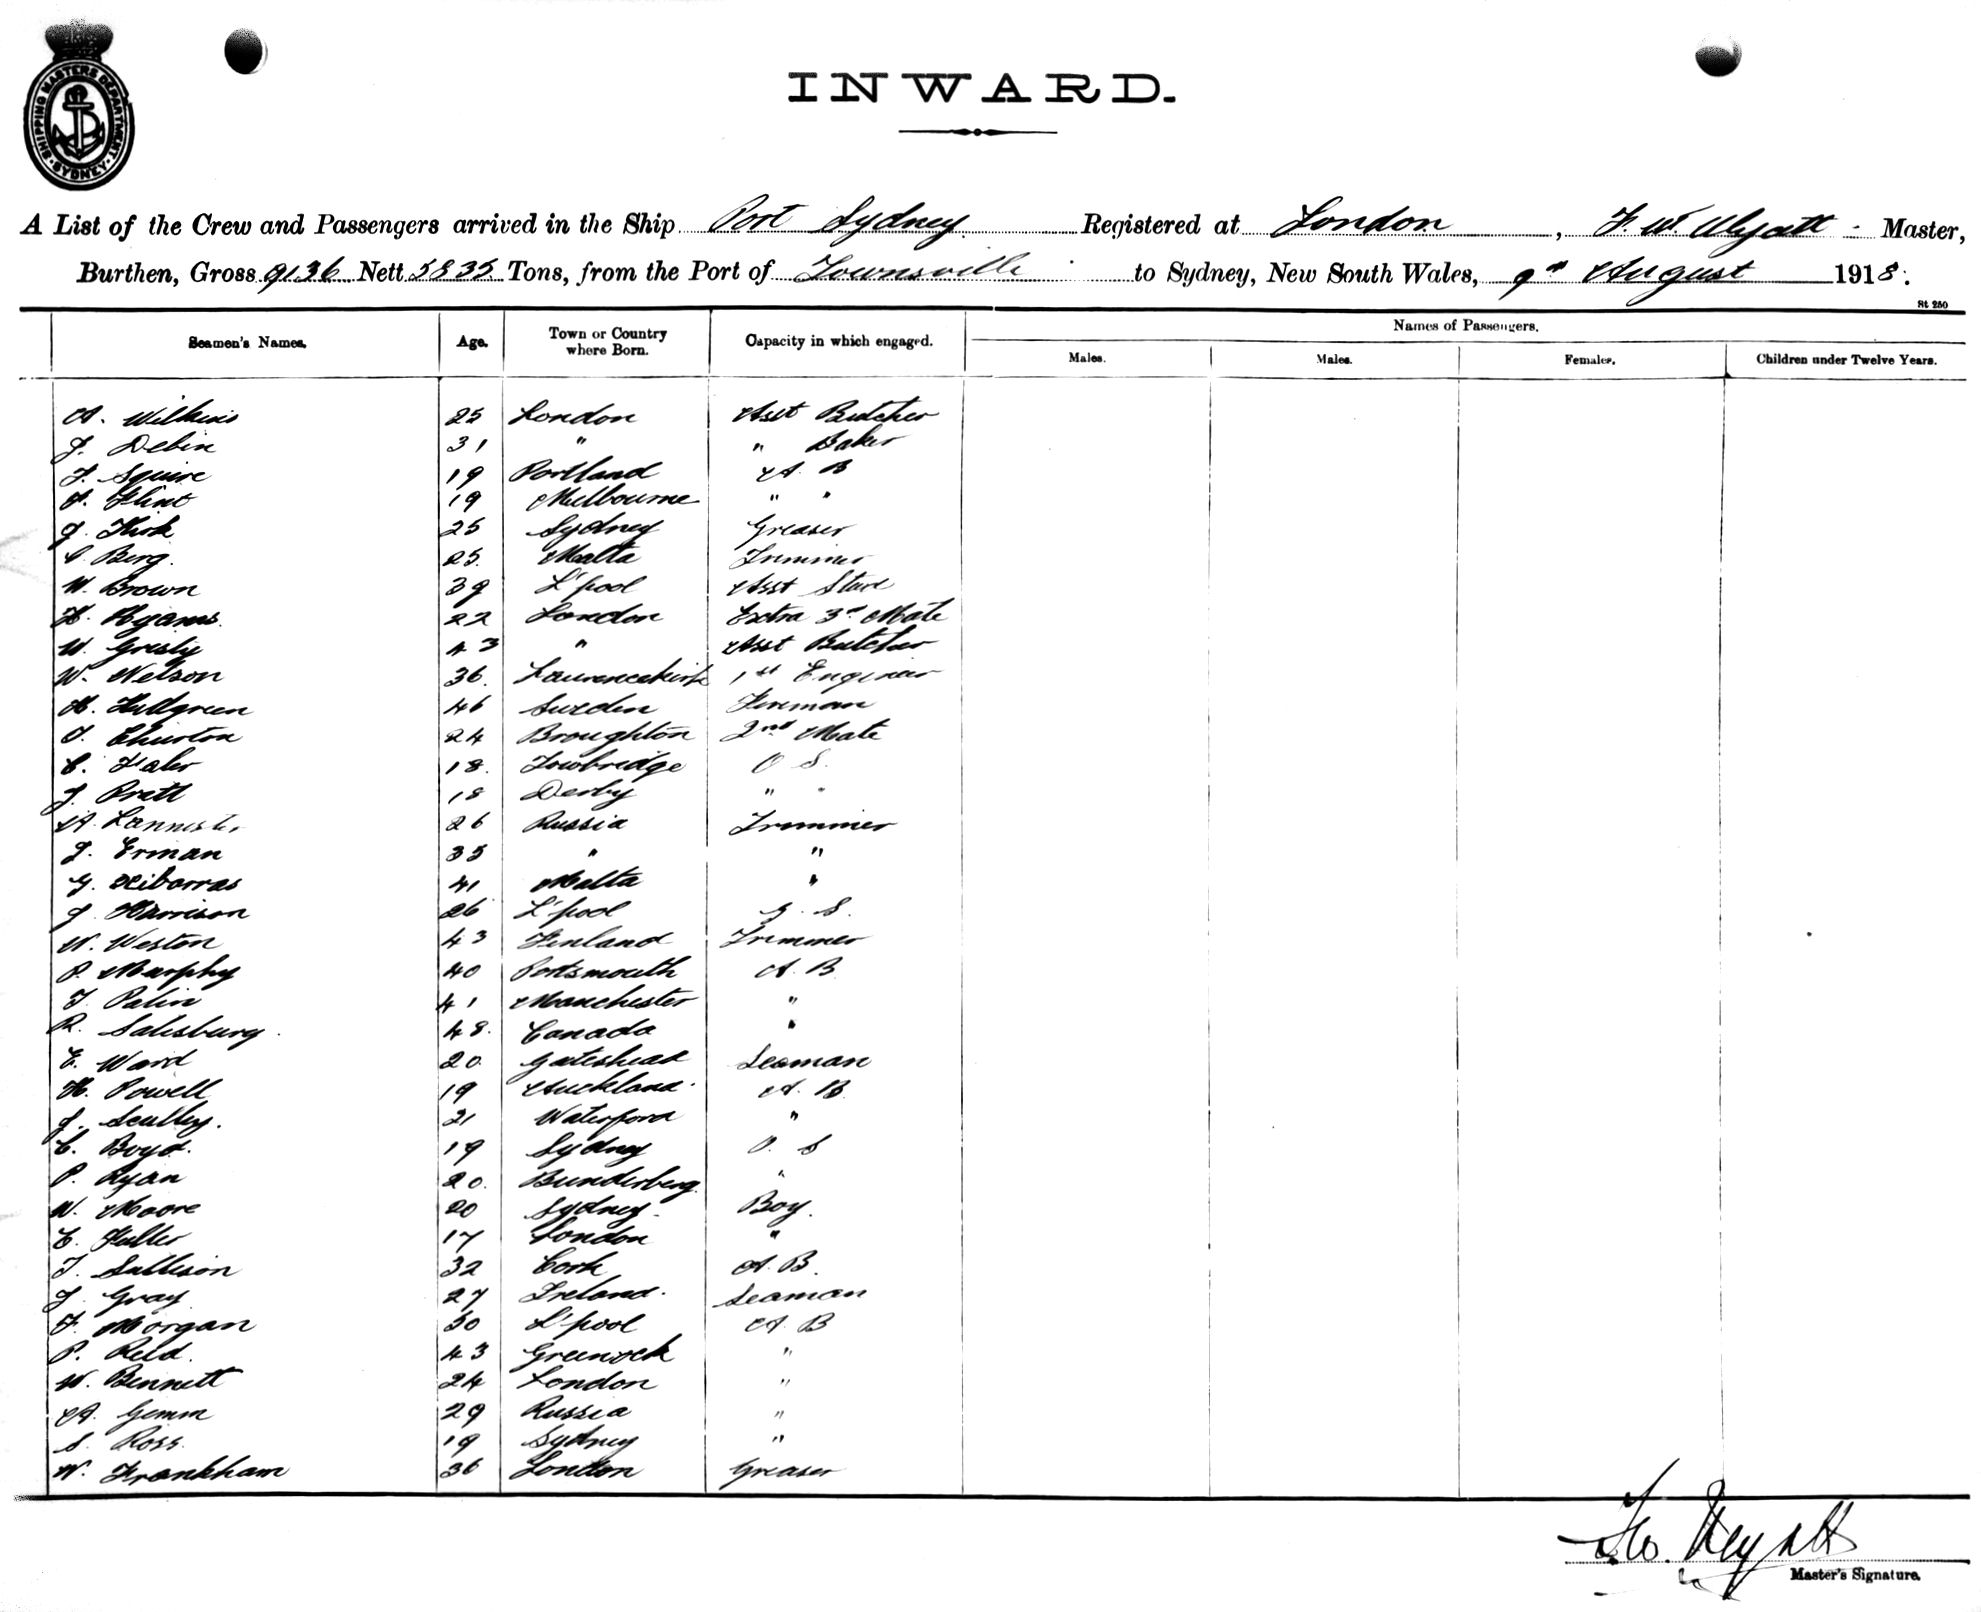 SHIPPING MASTERS DEPARTMENT
SYDNEY
INWARD.
A List of the Crew and Passengers arrived in the Ship Port Sydney Registered at London, F. W. Wyatt Master,
Burthen, Gross 9136 Nett 5835 Tons, from the Port of Townsville to Sydney, New South Wales, 9th August 1918.
St 250
Seamen's Names. Age. Town or Country where Born. Capacity in which engaged. Names of Passengers.
Males. Males. Females. Children under Twelve Years.
A. Wilkins 25 London Asst Butcher
J. Debin 31 " " Baker
F. Squire 19 Portland A. B
F. Flint 19 Melbourne " "
J. Kirk 25 Sydney Greaser
C Berg. 25. Malta Trimmer
W. Brown 39 L'pool Asst Stwd
H. Hyams. 22 London Extra 3rd Mate
W. Gristy 43 " Asst Butcher
W. Nelson 36. Laurencekirk 1st Engineer
H. Hillgreen 46 Sweden Fireman
T. Churton 24 Broughton 2nd Mate
C. 18. Towbridge O S.
J. Pratt 18 Derby " "
A. Lannister 26 Russia Trimmer
J. Erman 35 " "
G. Xibarras 41 Malta "
J. Harrison 26 L'pool G. S.
W. Weston 43 Finland Trimmer
P. Murphy 40 Portsmouth A. B
T. Palin 41 Manchester "
R. Salisburg. 48. Canada "
E. Ward 20. Gateshead Seaman
H. Powell 19 Auckland. A. B.
J. Sculley. 21 Waterford "
C. Boyd. 19 Sydney O. S
P. Ryan 20. Bunderberg. "
W. Moore 20 Sydney. Boy.
C. Fuller 17 London "
T. Sullison 32 Cork A. B.
J. Gray 27 Ireland. Seaman
F. Morgan 30 L'pool A. B
P. Reld. 43 Greenock "
W. Bennett 24 London "
A. Gemm 29 Russia "
S. Ross. 19 Sydney "
W. Frankham 36 London Greaser
F. W. Wyatt
Master's Signature.